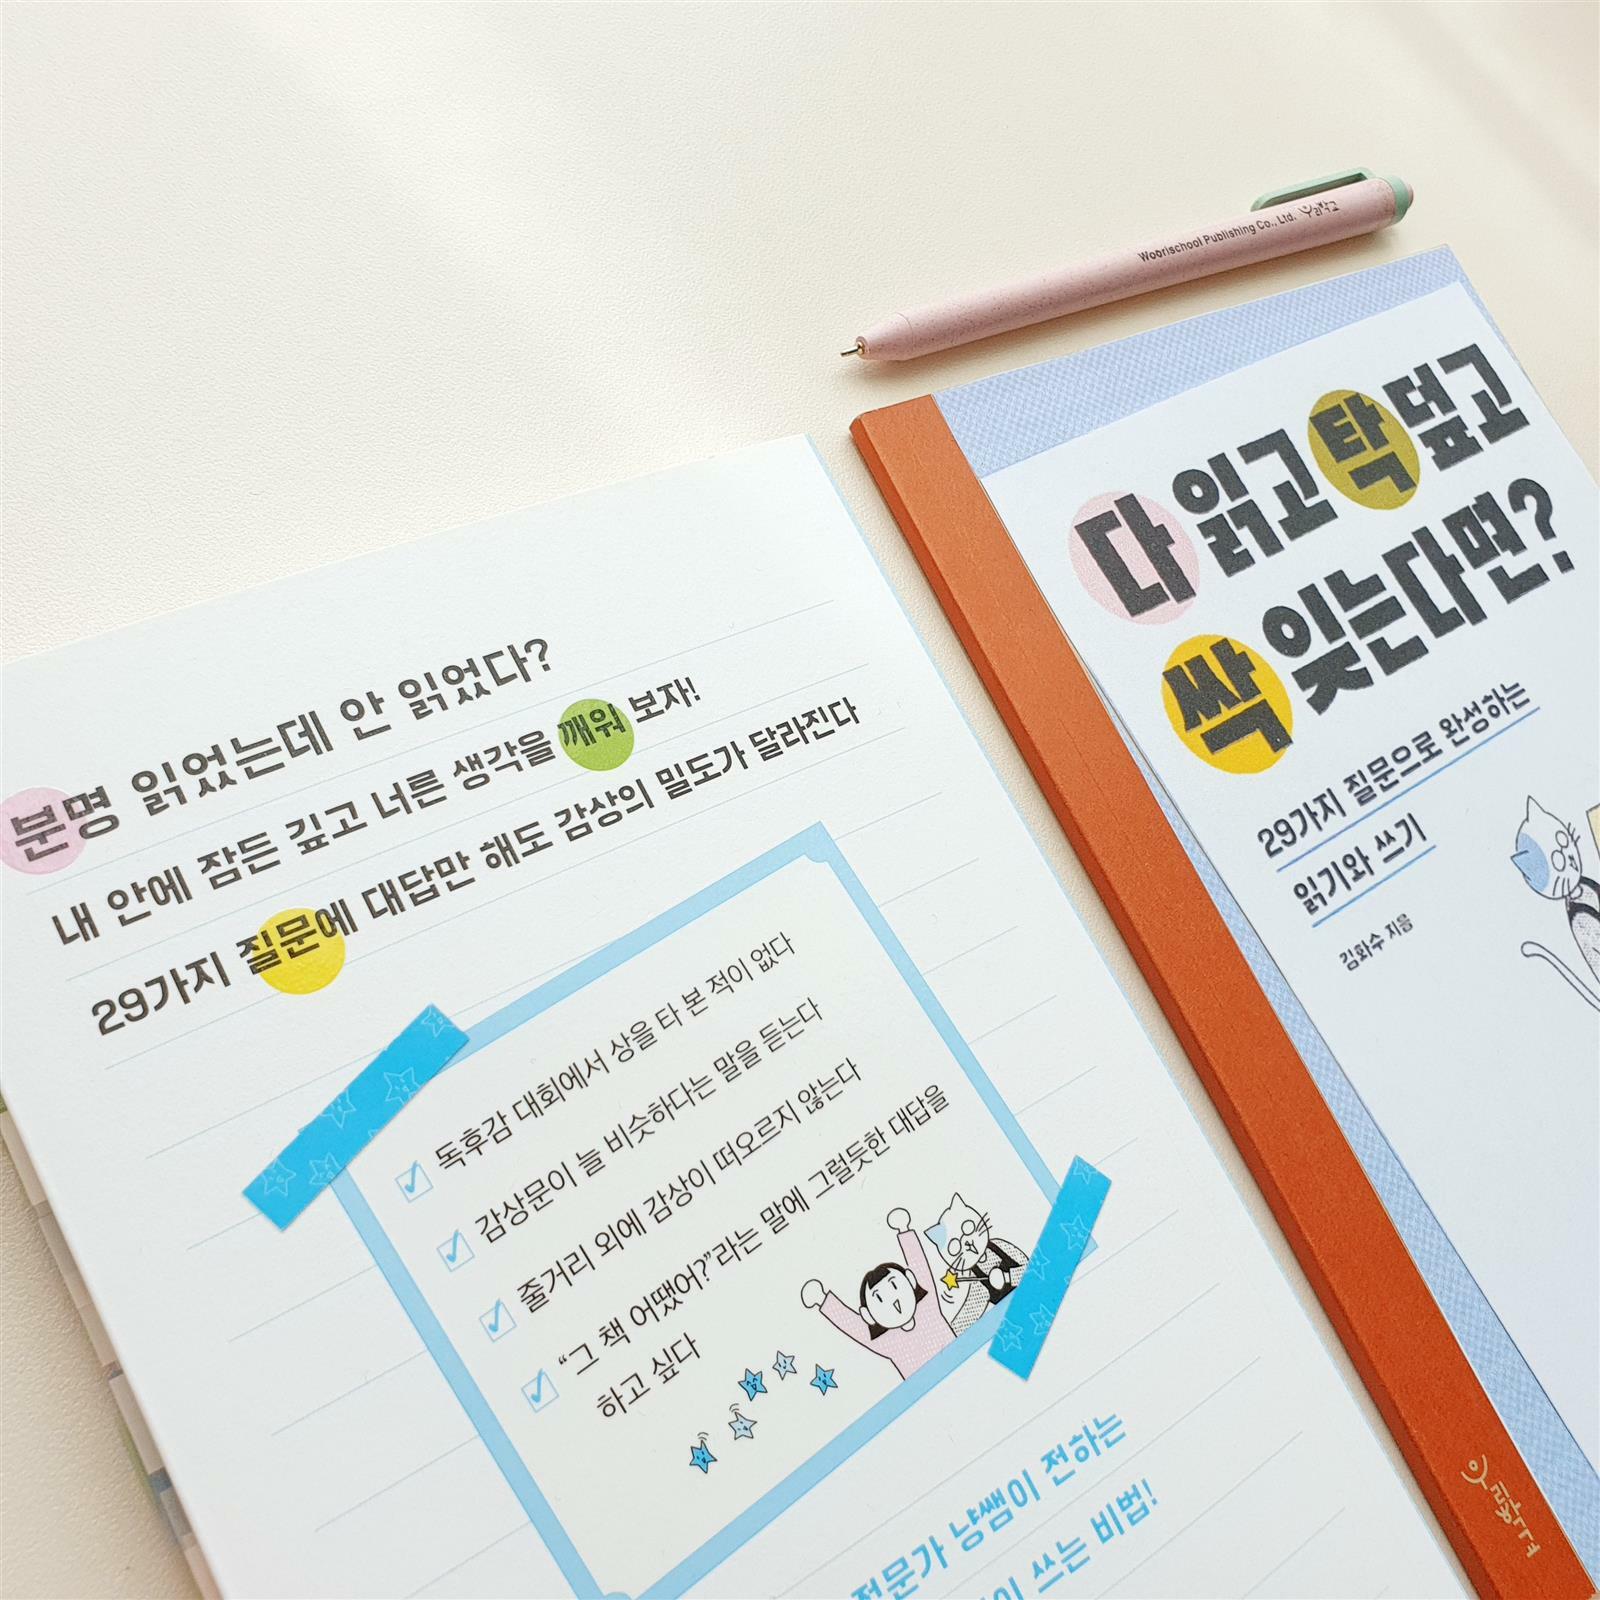 분명 읽었는데 안 읽었다?
내 안에 잠든 깊고 너른 생각을 깨워 보자!
29가지 질문에 대답만 해도 감상의 밀도가 달라진다
독후감 대회에서 상을 타 본 적이 없다
감상문이 늘 비슷하다는 말을 듣는다
줄거리 외에 감상이 떠오르지 않는다
“그 책 어땠어?”라는 말에 그럴듯한 대답을
하고 싶다
전문가 냥쌤이 전하는
쓰는 비법!
Woorischool Publishing Co., Ltd. 우리학교
다 읽고 탁 덮고
싹 잊는다면?
29가지 질문으로 완성하는
읽기와 쓰기
김화수 지음
우리학교